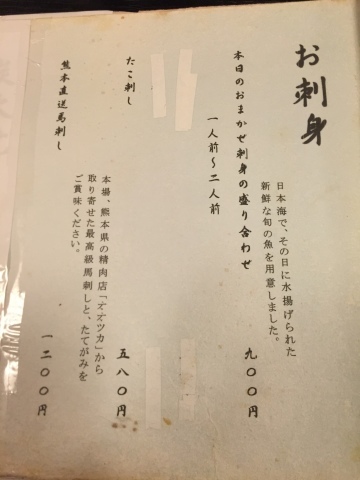 お刺身
日本海で、その日に水揚げられた
新鮮な旬の魚を用意しました。
本日のおまかせ刺身の盛り合わせ
一人前〜二人前
九〇〇円
たこ刺し
五八〇円
熊本直送馬刺し
本場、熊本県の精肉店「オオツカ」から
取り寄せた最高級馬刺しと、たてがみを
ご賞味ください。
一二〇〇円